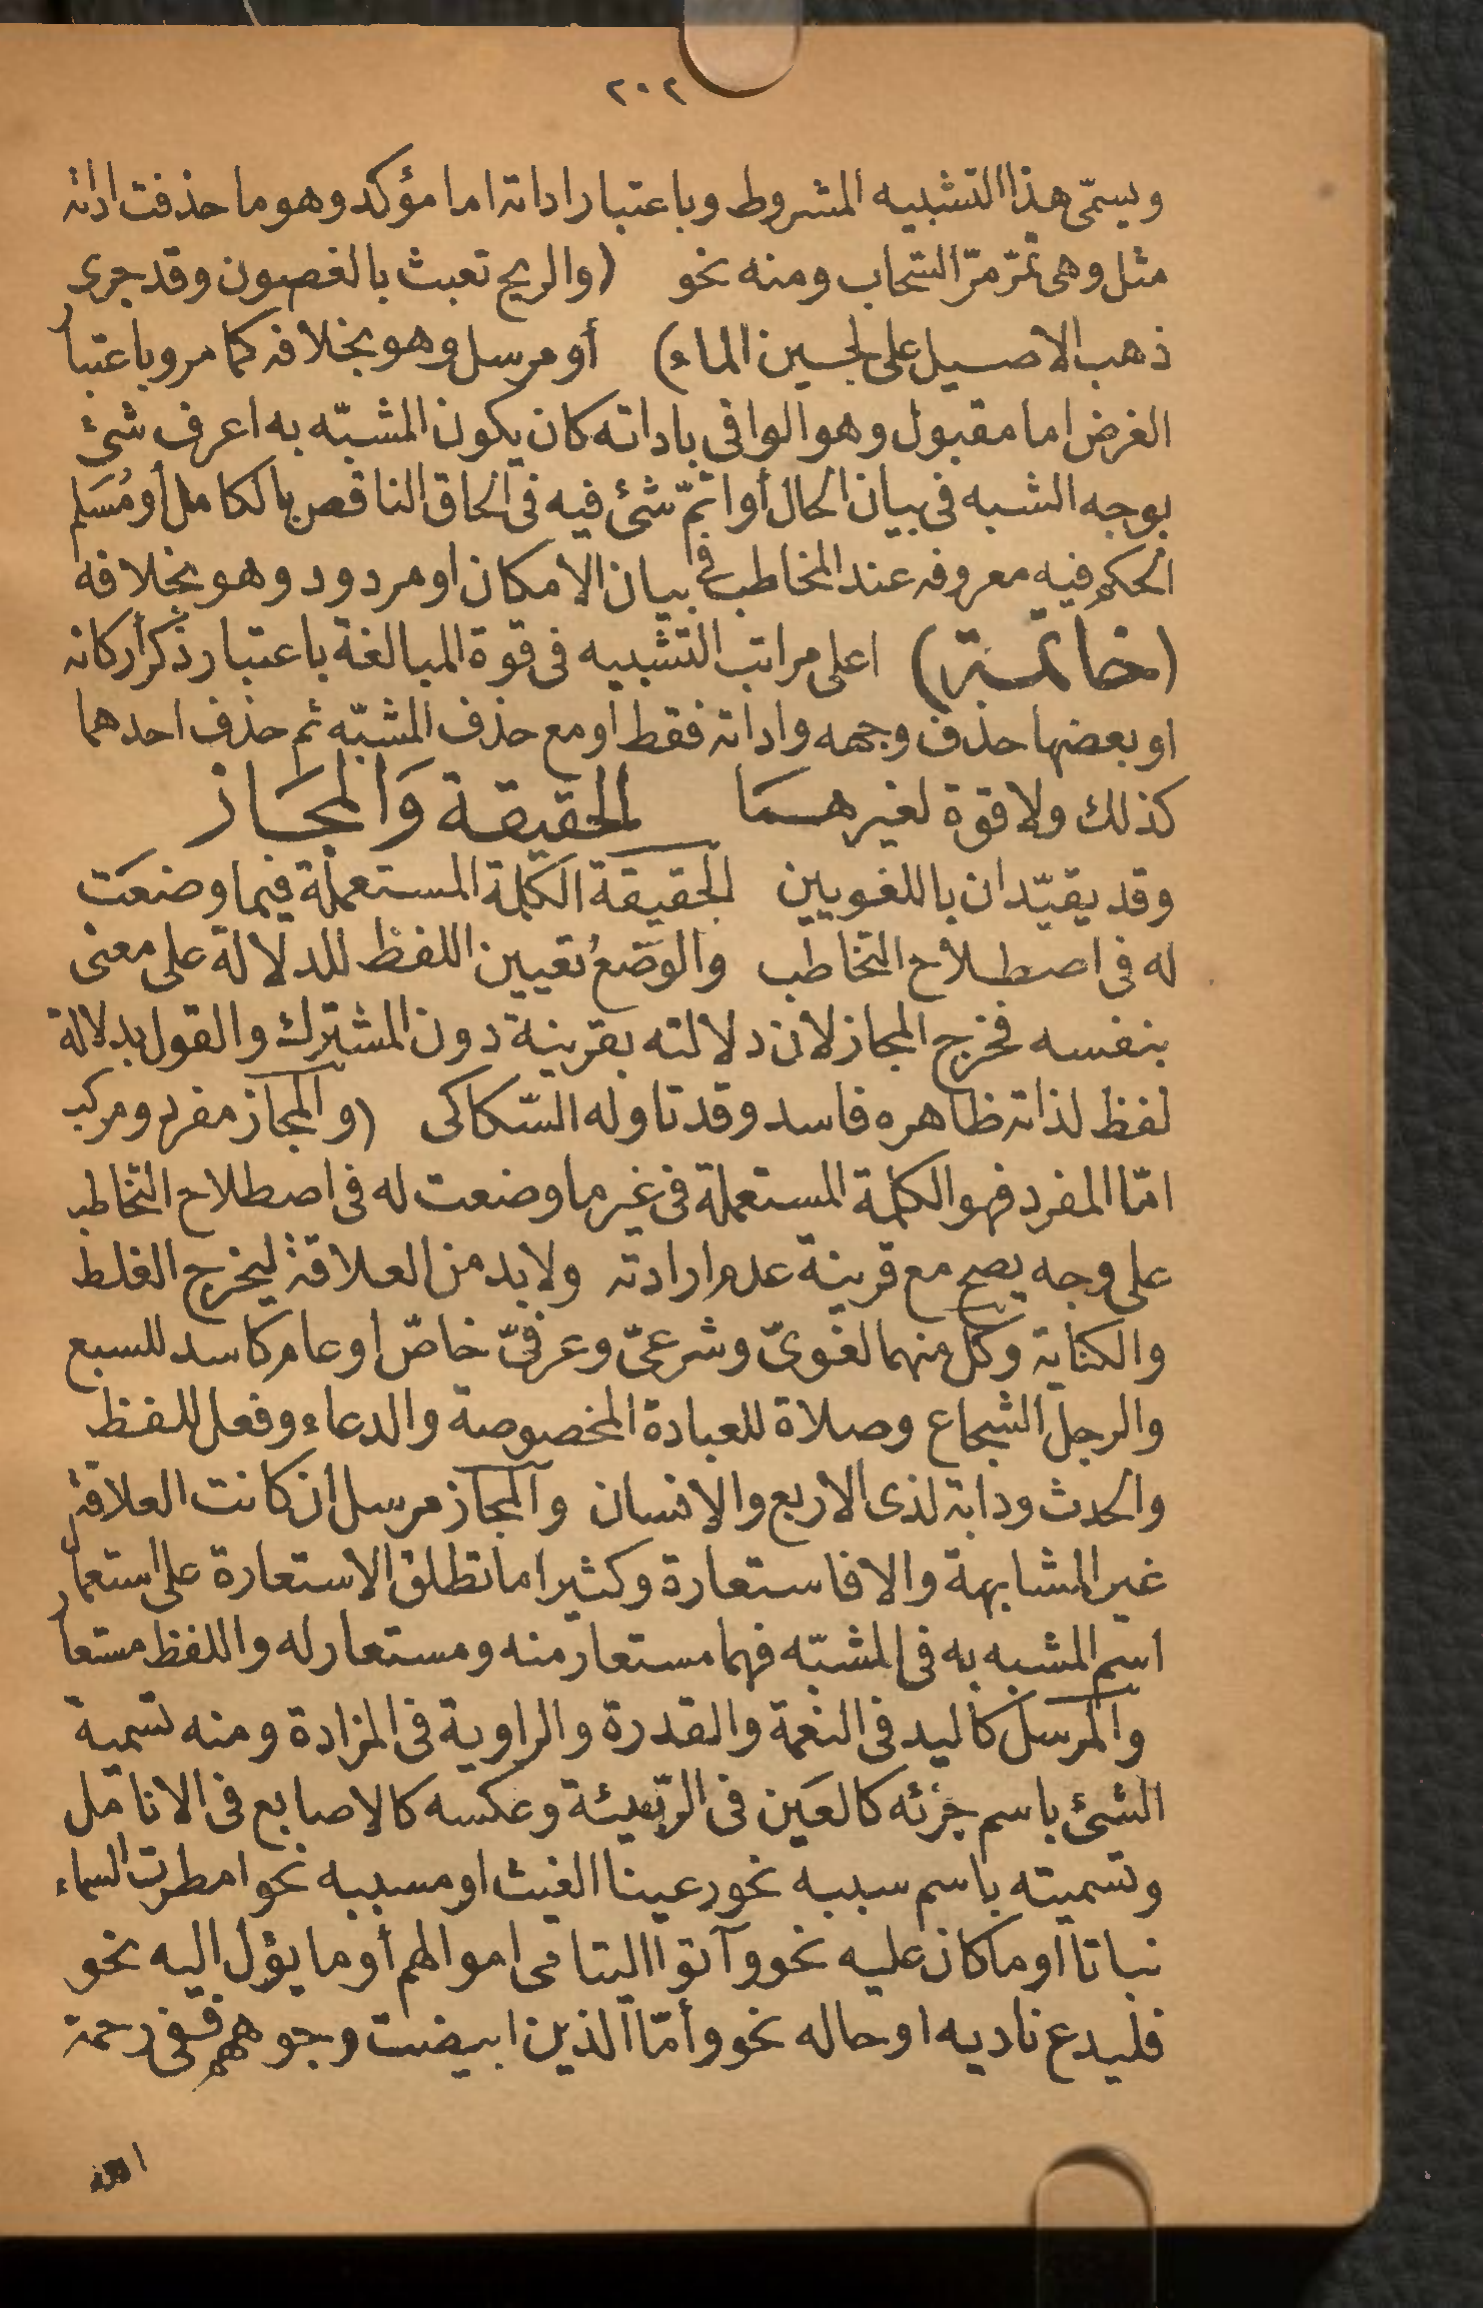 ٢٠٢
ويسمّى هذا التشبيه المشروط وباعتبار اداته اما مؤكد وهو ما حذفت اداته
مثل وهى تمرّ مرّ السّحاب ومنه نحو (والريح تعبث بالغصون وقد جرى
ذهب الاصيل على لجين الماء) أو مرسل وهو بخلافه كما مر وباعتبار
الغرض اما مقبول وهو الوافى باداته كان يكون المشبّه به اعرف شئ
بوجه الشبه فى بيان الحال أو اتمّ شئ فيه فى الحاق الناقص بالكامل أو مُسَلم
الحكم فيه معروفه عند المخاطب فى بيان الامكان او مردود وهو بخلافه
(خاتمة) اعلى مراتب التشبيه فى قوة المبالغة باعتبار ذكر أركانه
او بعضها حذف وجهه واداته فقط او مع حذف المشبّه ثم حذف احدهما
كذلك ولا قوة لغيرهما الحقيقة وَالمجَاز
وقد يقيّدان باللغويين الحقيقة الكلمة المستعملة فيما وضعَت
له فى اصطلاح التخاطب والوَضعُ تعيين اللفظ للدلالة على معنى
بنفسه فخرج المجاز لان دلالته بقرينة دون المشترك والقول بدلالة
لفظ لذاته ظاهره فاسد وقد تاوله السّكاكى (والمجاز مفرد ومركب
امّا المفرد فهو الكلمة المستعملة فى غير ما وضعت له فى اصطلاح التخاطب
على وجه يصح مع قرينة عدم ارادته ولا بد من العلاقة ليخرج الغلط
والكناية وكل منهما لغوىّ وشرعىّ وعرفىّ خاصّ او عام كاسد للسبع
والرجل الشجاع وصلاة للعبادة المخصوصة والدعاء وفعل للفظ
والحدث ودابة لذى الاربع والانسان والمجاز مرسل ان كانت العلاقة
غير المشابهة والا فاستعارة وكثيرا ما تطلق الاستعارة على استعمار
اسم المشبه به فى المشبّه فهما مستعار منه ومستعار له واللفظ مستعار
والمرسل كاليد فى النعمة والقدرة والراوية فى المزادة ومنه تسمية
الشئ باسم جزئه كالعَين فى الربّيئة وعكسه كالاصابع فى الانامل
وتسميته باسم سببه نحو رعينا الغيث او مسببه نحو امطرت السماء
نباتا او ما كان عليه نحو وآتوا اليتامى اموالهم أو ما يؤل اليه نحو
فليدع ناديه او حاله نحو وأمّا الذين ابيضت وجوههم ففى رحمة